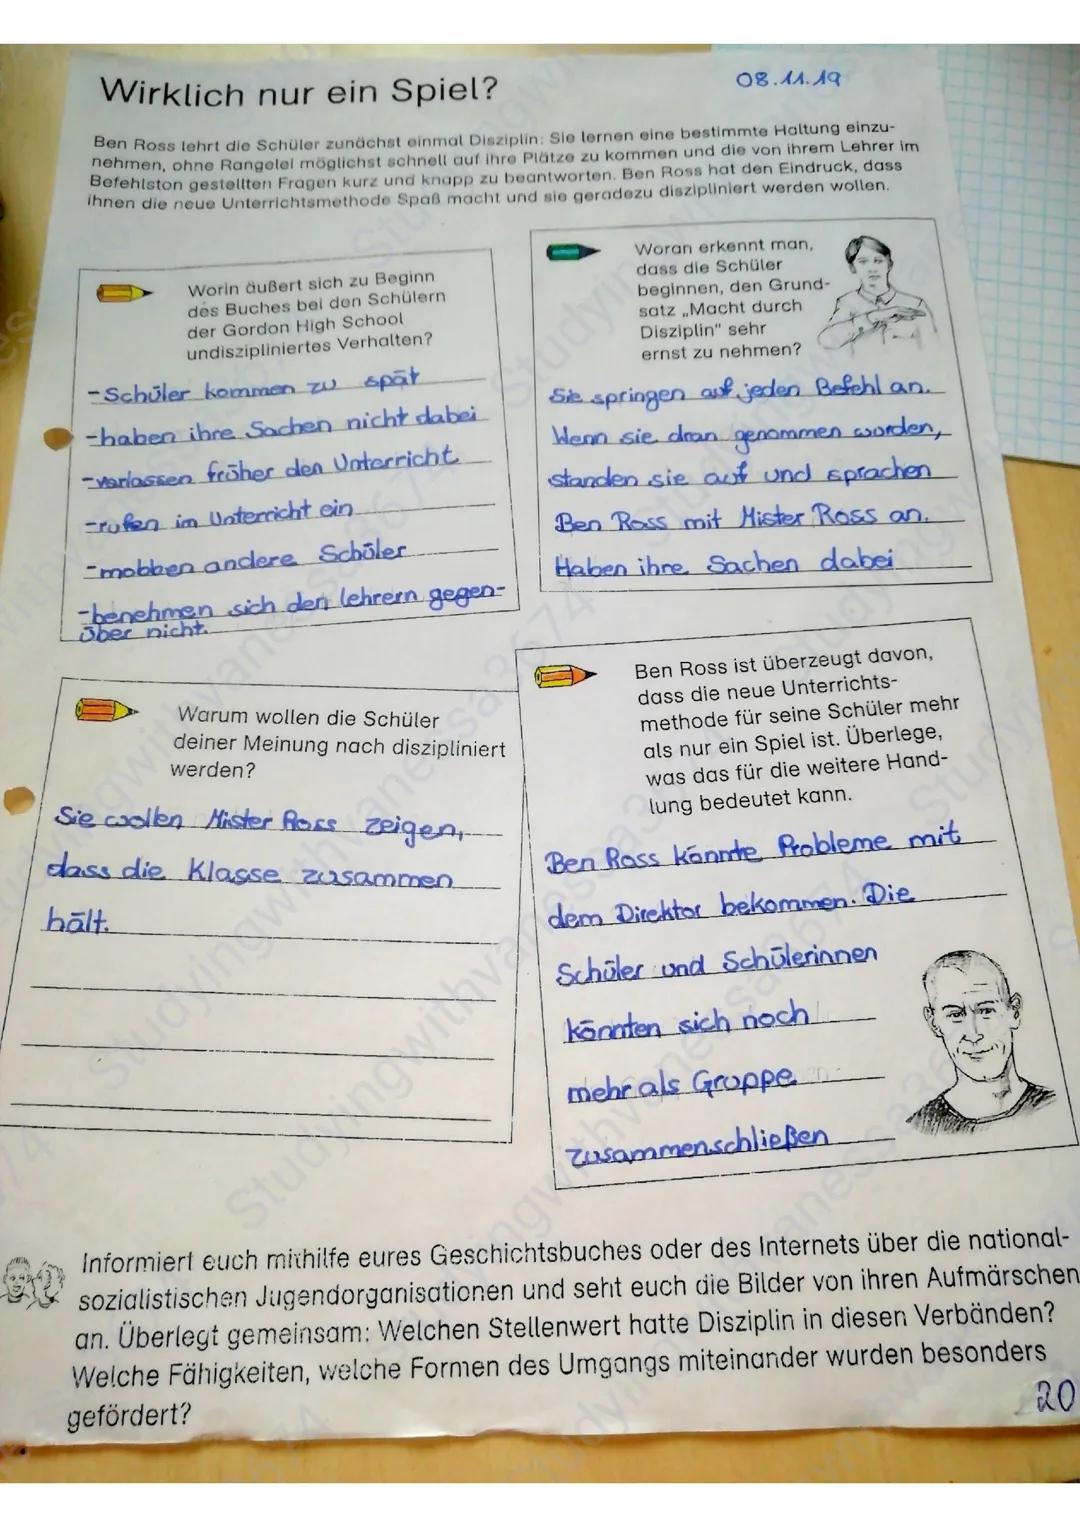 Wirklich nur ein Spiel?
08.11.19
Ben Ross lehrt die Schüler zunächst einmal Disziplin: Sie lernen eine bestimmte Haltung einzu-
nehmen, ohne Rangelei möglichst schnell auf ihre Plätze zu kommen und die von ihrem Lehrer im
Befehlston gestellten Fragen kurz und knapp zu beantworten. Ben Ross hat den Eindruck, dass
ihnen die neue Unterrichtsmethode Spaß macht und sie geradezu diszipliniert werden wollen.
Worin äußert sich zu Beginn
des Buches bei den Schülern
der Gordon High School
undiszipliniertes Verhalten?
-Schüler kommen zu spät
-haben ihre Sachen nicht dabei
-verlassen früher den Unterricht
-rufen im Unterricht ein
-mobben andere Schüler
-benehmen sich den lehrern gegen-
über nicht.
Woran erkennt man,
dass die Schüler
beginnen, den Grund-
satz „Macht durch
Disziplin" sehr
ernst zu nehmen?
Sie springen auf jeden Befehl an.
Wenn sie dran genommen worden,
standen sie auf und sprachen
Ben Ross mit Mister Ross an.
Haben ihre Sachen dabei
Warum wollen die Schüler
deiner Meinung nach diszipliniert
werden?
Sie wollen Mister Ross zeigen,
dass die Klasse zusammen
hält.
Ben Ross ist überzeugt davon,
dass die neue Unterrichts-
methode für seine Schüler mehr
als nur ein Spiel ist. Überlege,
was das für die weitere Hand-
lung bedeutet kann.
Ben Ross könnte Probleme mit
dem Direktor bekommen. Die
Schüler und Schülerinnen
könnten sich noch
mehr als Gruppe
zusammenschließen
Informiert euch mithilfe eures Geschichtsbuches oder des Internets über die national-
sozialistischen Jugendorganisationen und seht euch die Bilder von ihren Aufmärschen
an. Überlegt gemeinsam: Welchen Stellenwert hatte Disziplin in diesen Verbänden?
Welche Fähigkeiten, welche Formen des Umgangs miteinander wurden besonders
gefördert?
20
Studyingwithvanessa3674